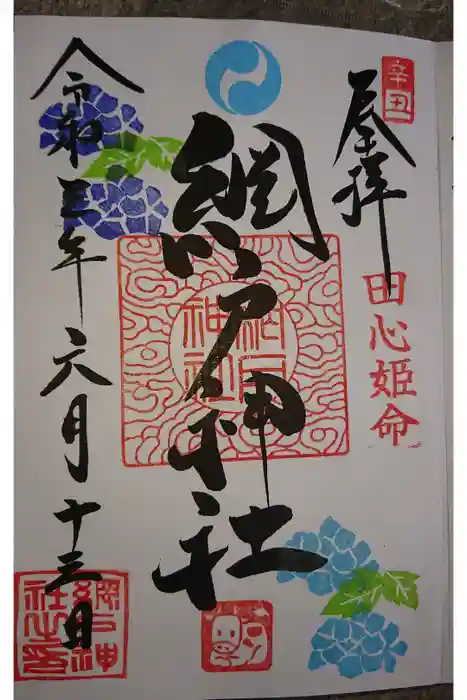 辛丑
奉拝
田心姫命
網戸神社
網戸神社
令和三年六月十三日
網戸神社之印